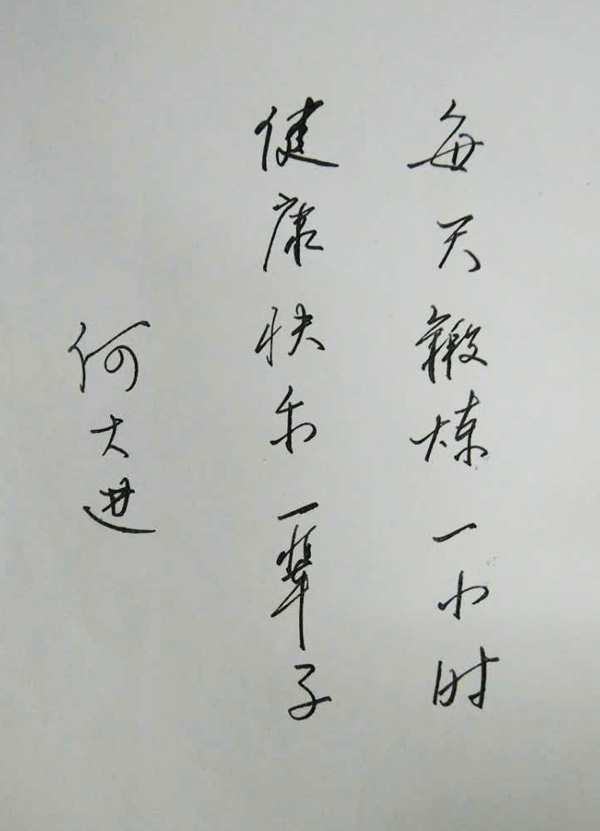 每天锻炼一小时
健康快乐一辈子
何大进